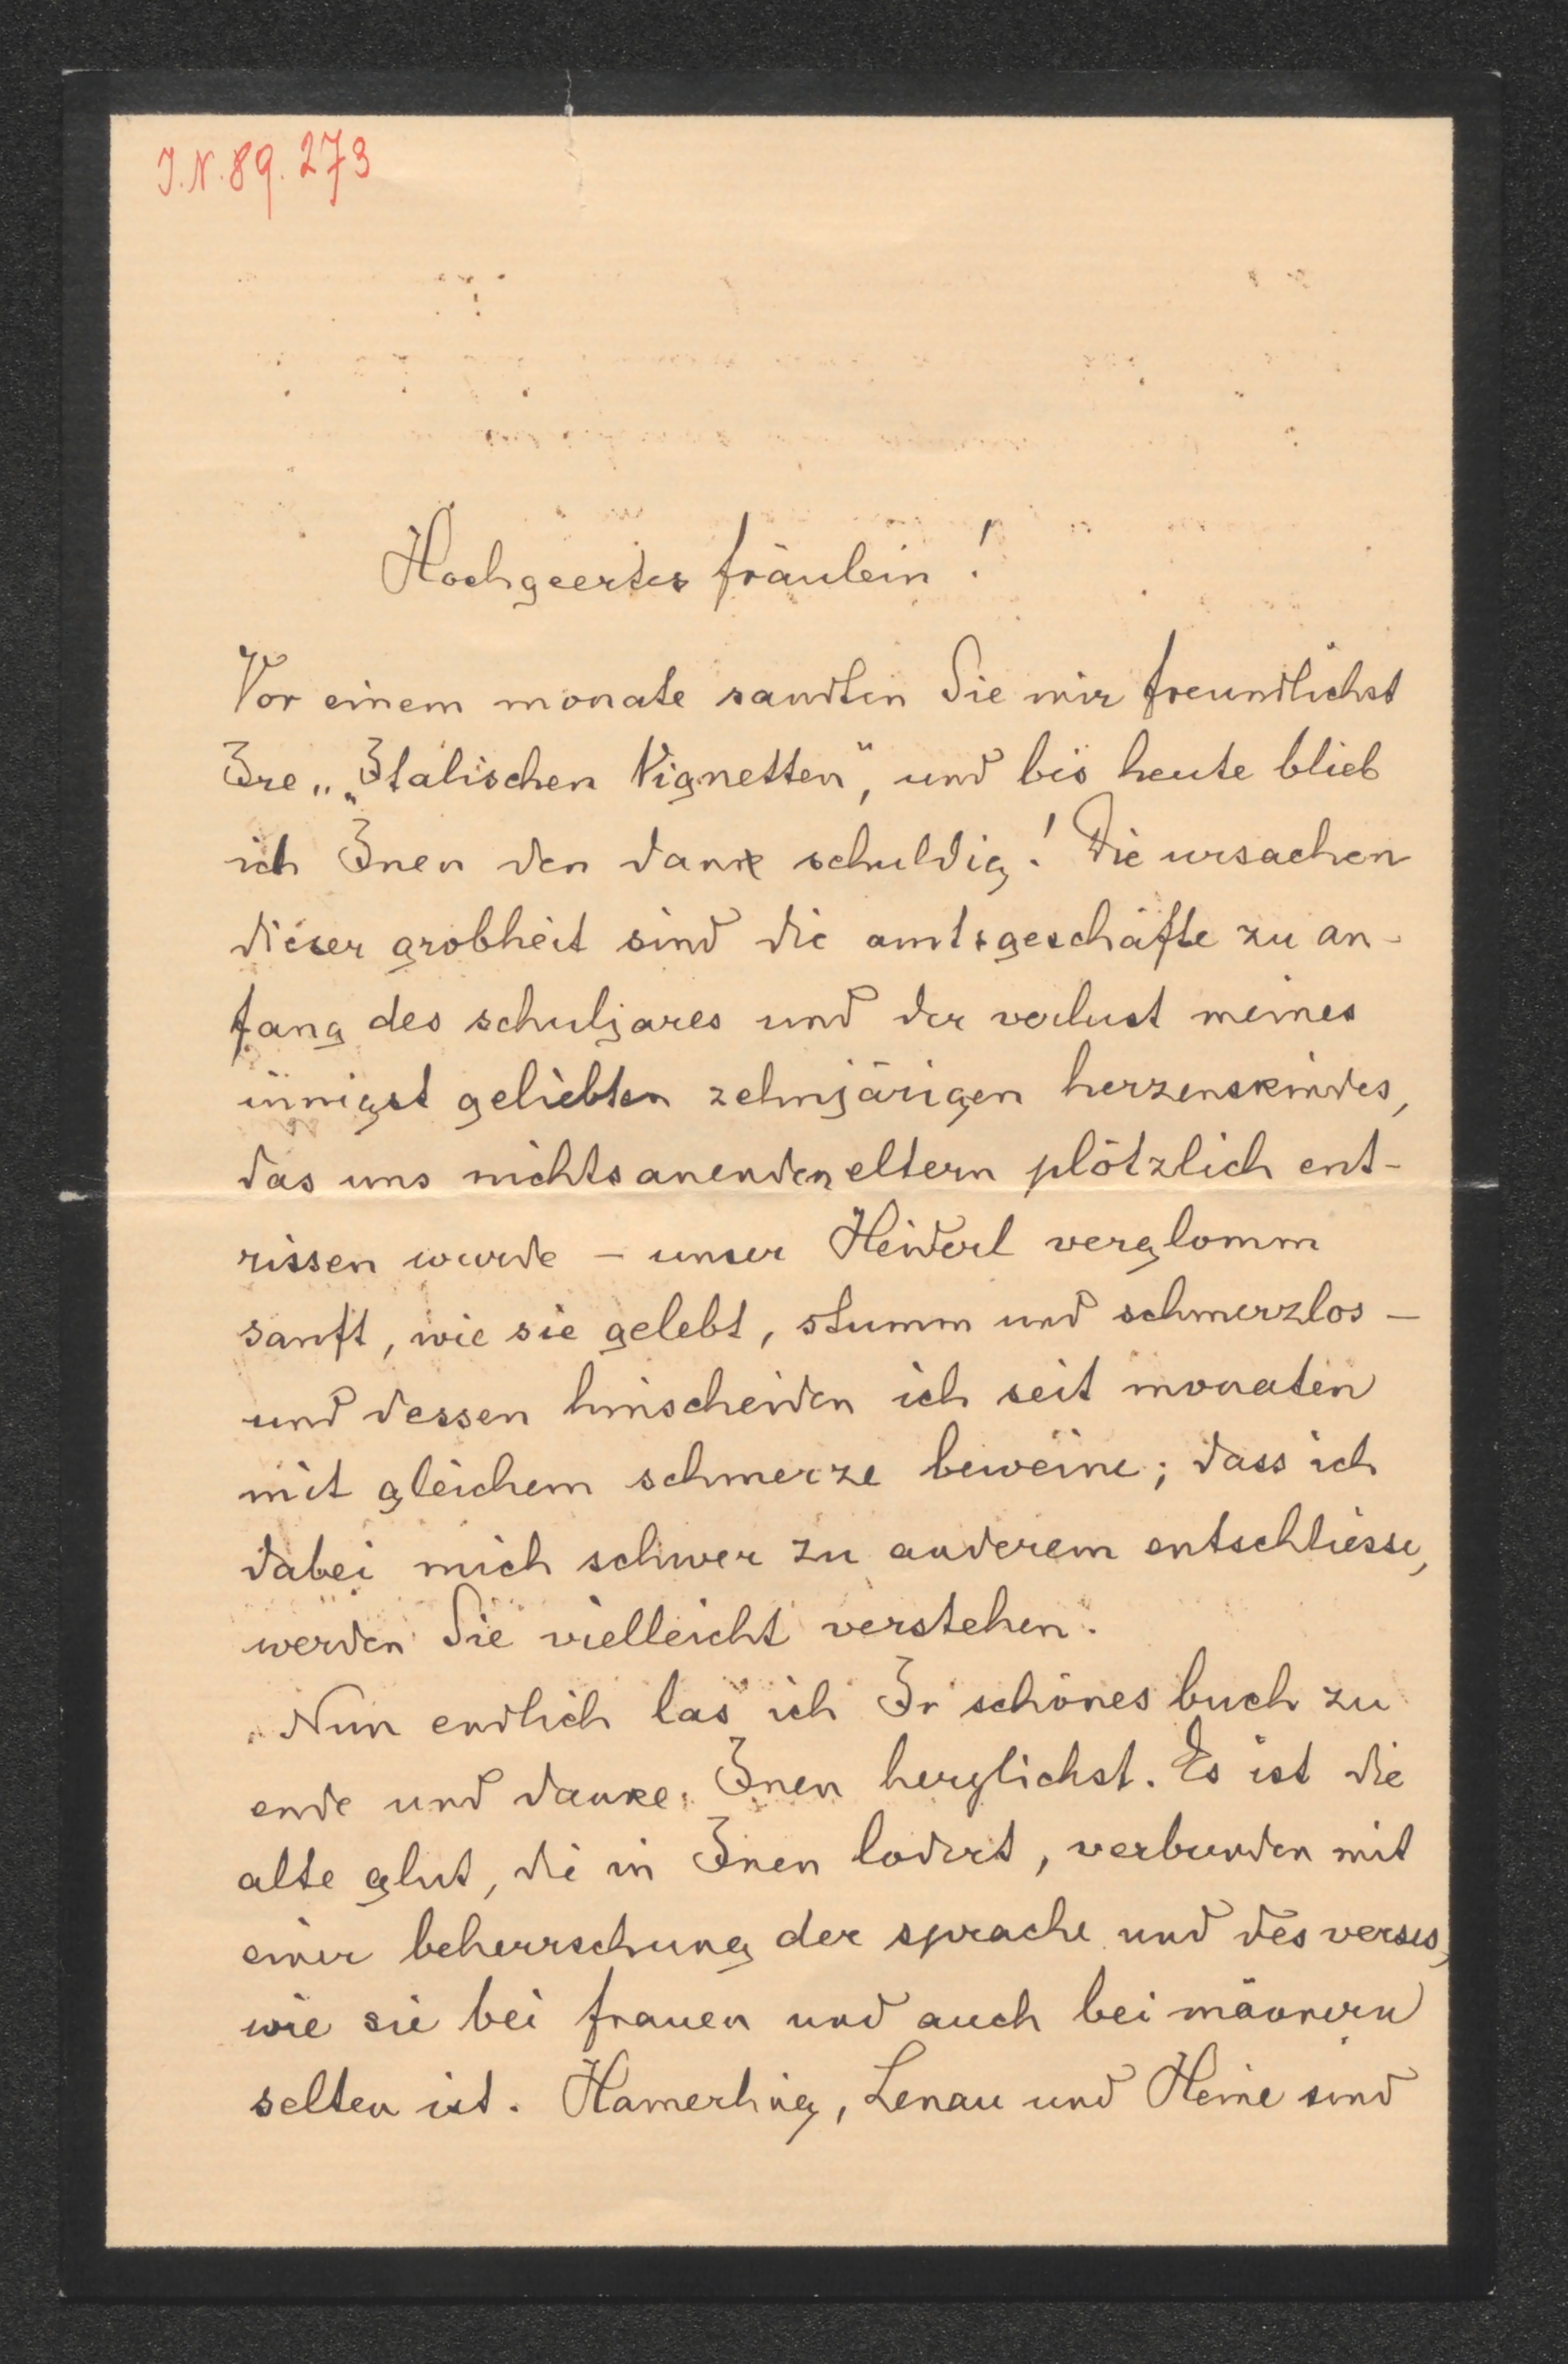 J.N. 89.273
Hochgeertes fräulein!
Vor einem monate sandten Sie mir freundlichst
Ire „Italischen Vignetten“, und bis heute blieb
ich Inen den dank schuldig! Die ursachen
dieser grobheit sind die amtsgeschäfte zu an-
fang des schuljares und der verlust meines
innigst geliebten zehnjärigen herzenskindes,
das uns nichtsanenden eltern plötzlich ent-
rissen wurde – unser Heiderl verglomm
sanft, wie sie gelebt, stumm und schmerzlos –
und dessen hinscheiden ich seit monaten
mit gleichem schmerze beweine; dass ich
dabei mich schwer zu anderem entschliesse,
werden Sie vielleicht verstehen.
Nun endlich las ich Ir schönes buch zu
ende und danke Inen herzlichst. Es ist die
alte glut, die in Inen lodert, verbunden mit
einer beherrschung der sprache und des verses,
wie sie bei frauen und auch bei männern
selten ist. Hamerling, Lenau und Heine sind